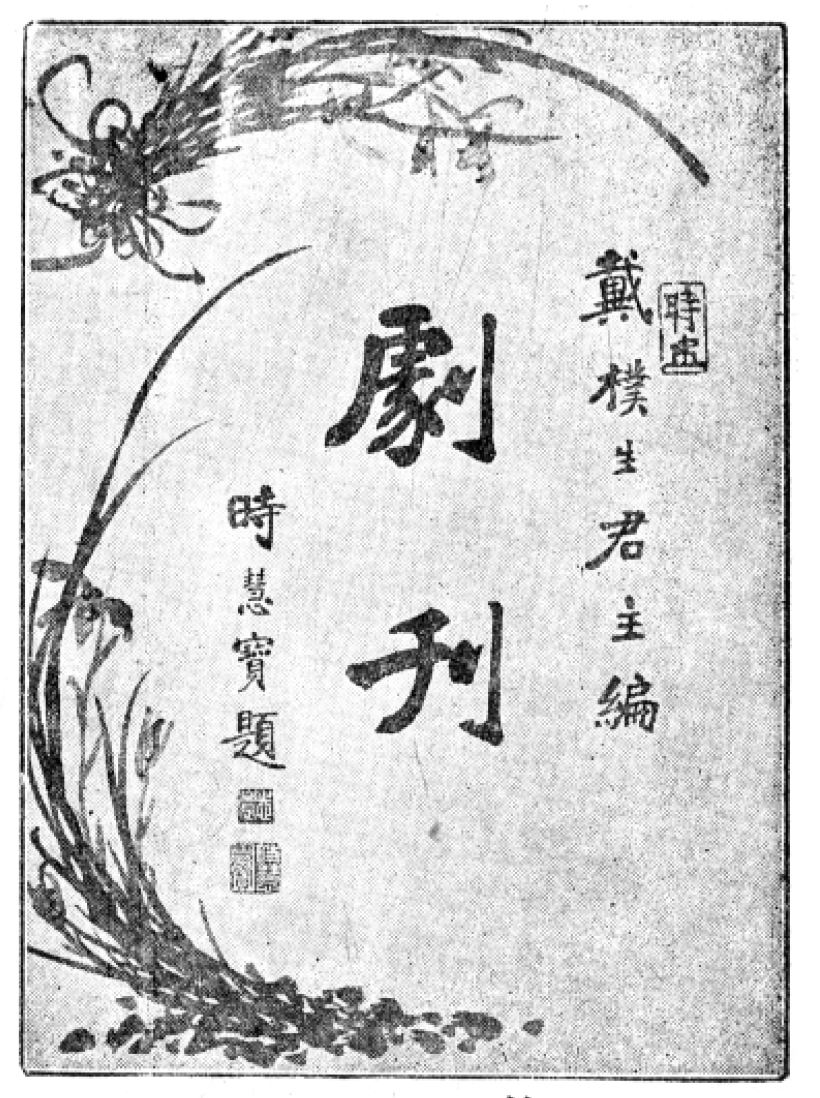 戴樸生君主編
劇刊
時慧寶題